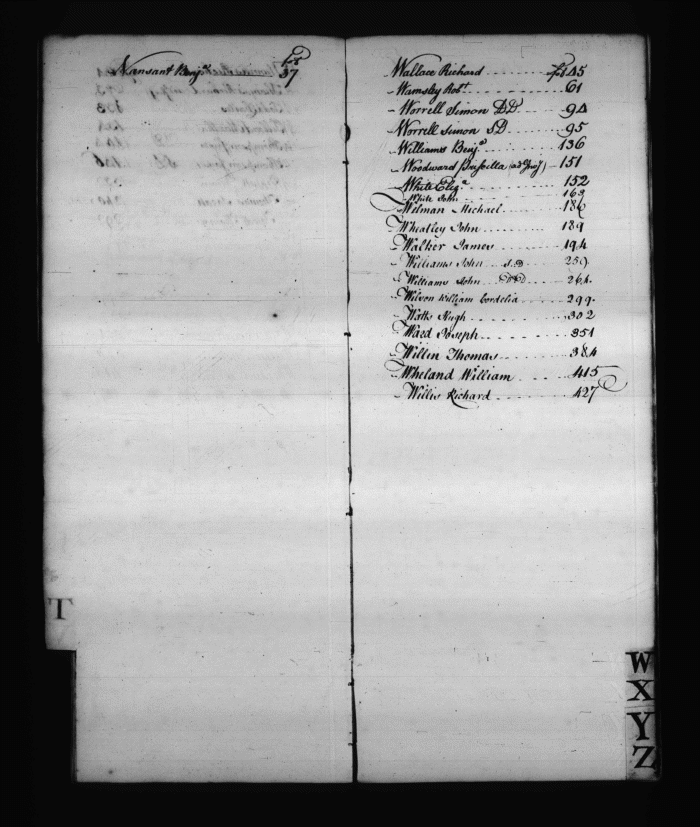 Vansant Benjn fol 37
T
Wallace Richard fol 45
Wamsley Robt 61
Worrell Simon DD 94
Worrell Simon SD 95
Williams Benjn 136
Woodward Priscilla 151
White Eliza 152
White John 163
Wilman Michael 186
Wheatley John 189
Walker James 194
Williams John SD 259
Williams John DD 264
Wilson William Cordelia 299
Watts Hugh 302
Ward Joseph 351
Willin Thomas 384
Wheland William 415
Willis Richard 427
W
X
Y
Z